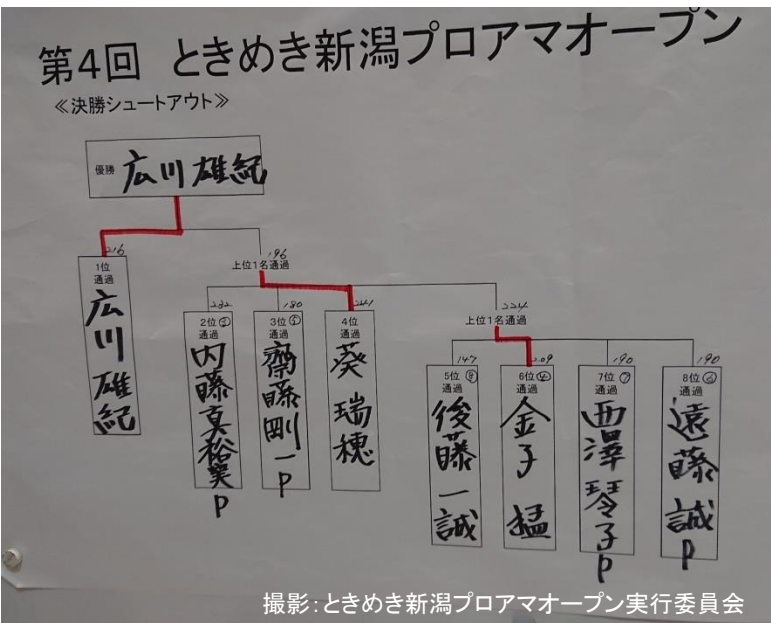 第4回 ときめき新潟プロアマオープン
≪決勝シュートアウト≫
優勝 広川雄紀
216
1位
通過
広川雄紀
196
上位1名通過
232
2位②
通過
内藤真裕実P
180
3位⑤
通過
齋藤剛一P
241
4位
通過
葵 瑞穂
224
上位1名通過
147
5位⑧
通過
後藤一誠
209
6位④
通過
金子 猛
190
7位⑦
通過
西澤琴子P
190
8位⑥
通過
遠藤誠P
撮影:ときめき新潟プロアマオープン実行委員会